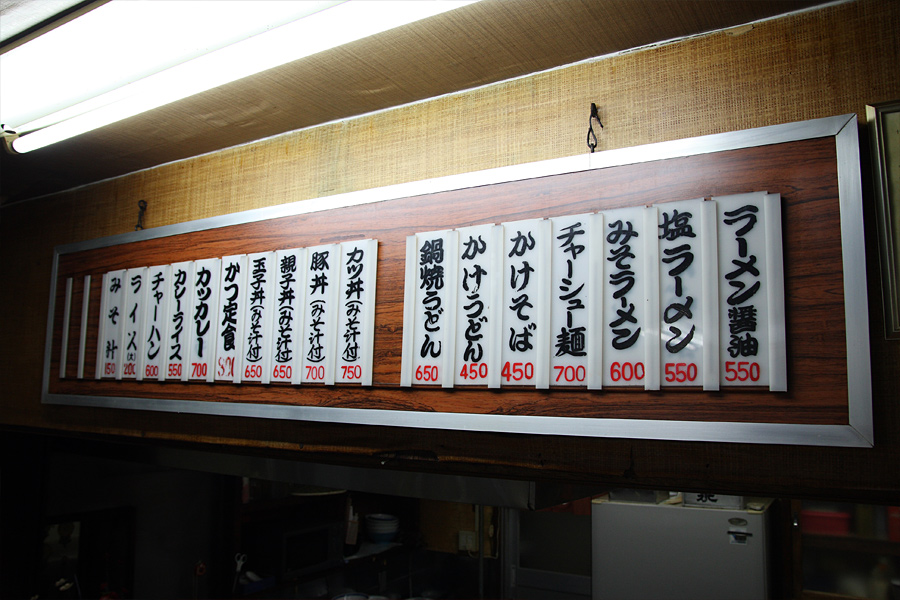 ラーメン醤油 550
塩ラーメン 550
みそラーメン 600
チャーシュー麺 700
かけそば 450
かけうどん 450
鍋焼うどん 650
カツ丼(みそ汁付) 750
豚丼(みそ汁付) 700
親子丼(みそ汁付) 650
玉子丼(みそ汁付) 650
かつ定食
カツカレー 700
カレーライス 550
チャーハン 600
ライス(大) 200
みそ汁 150